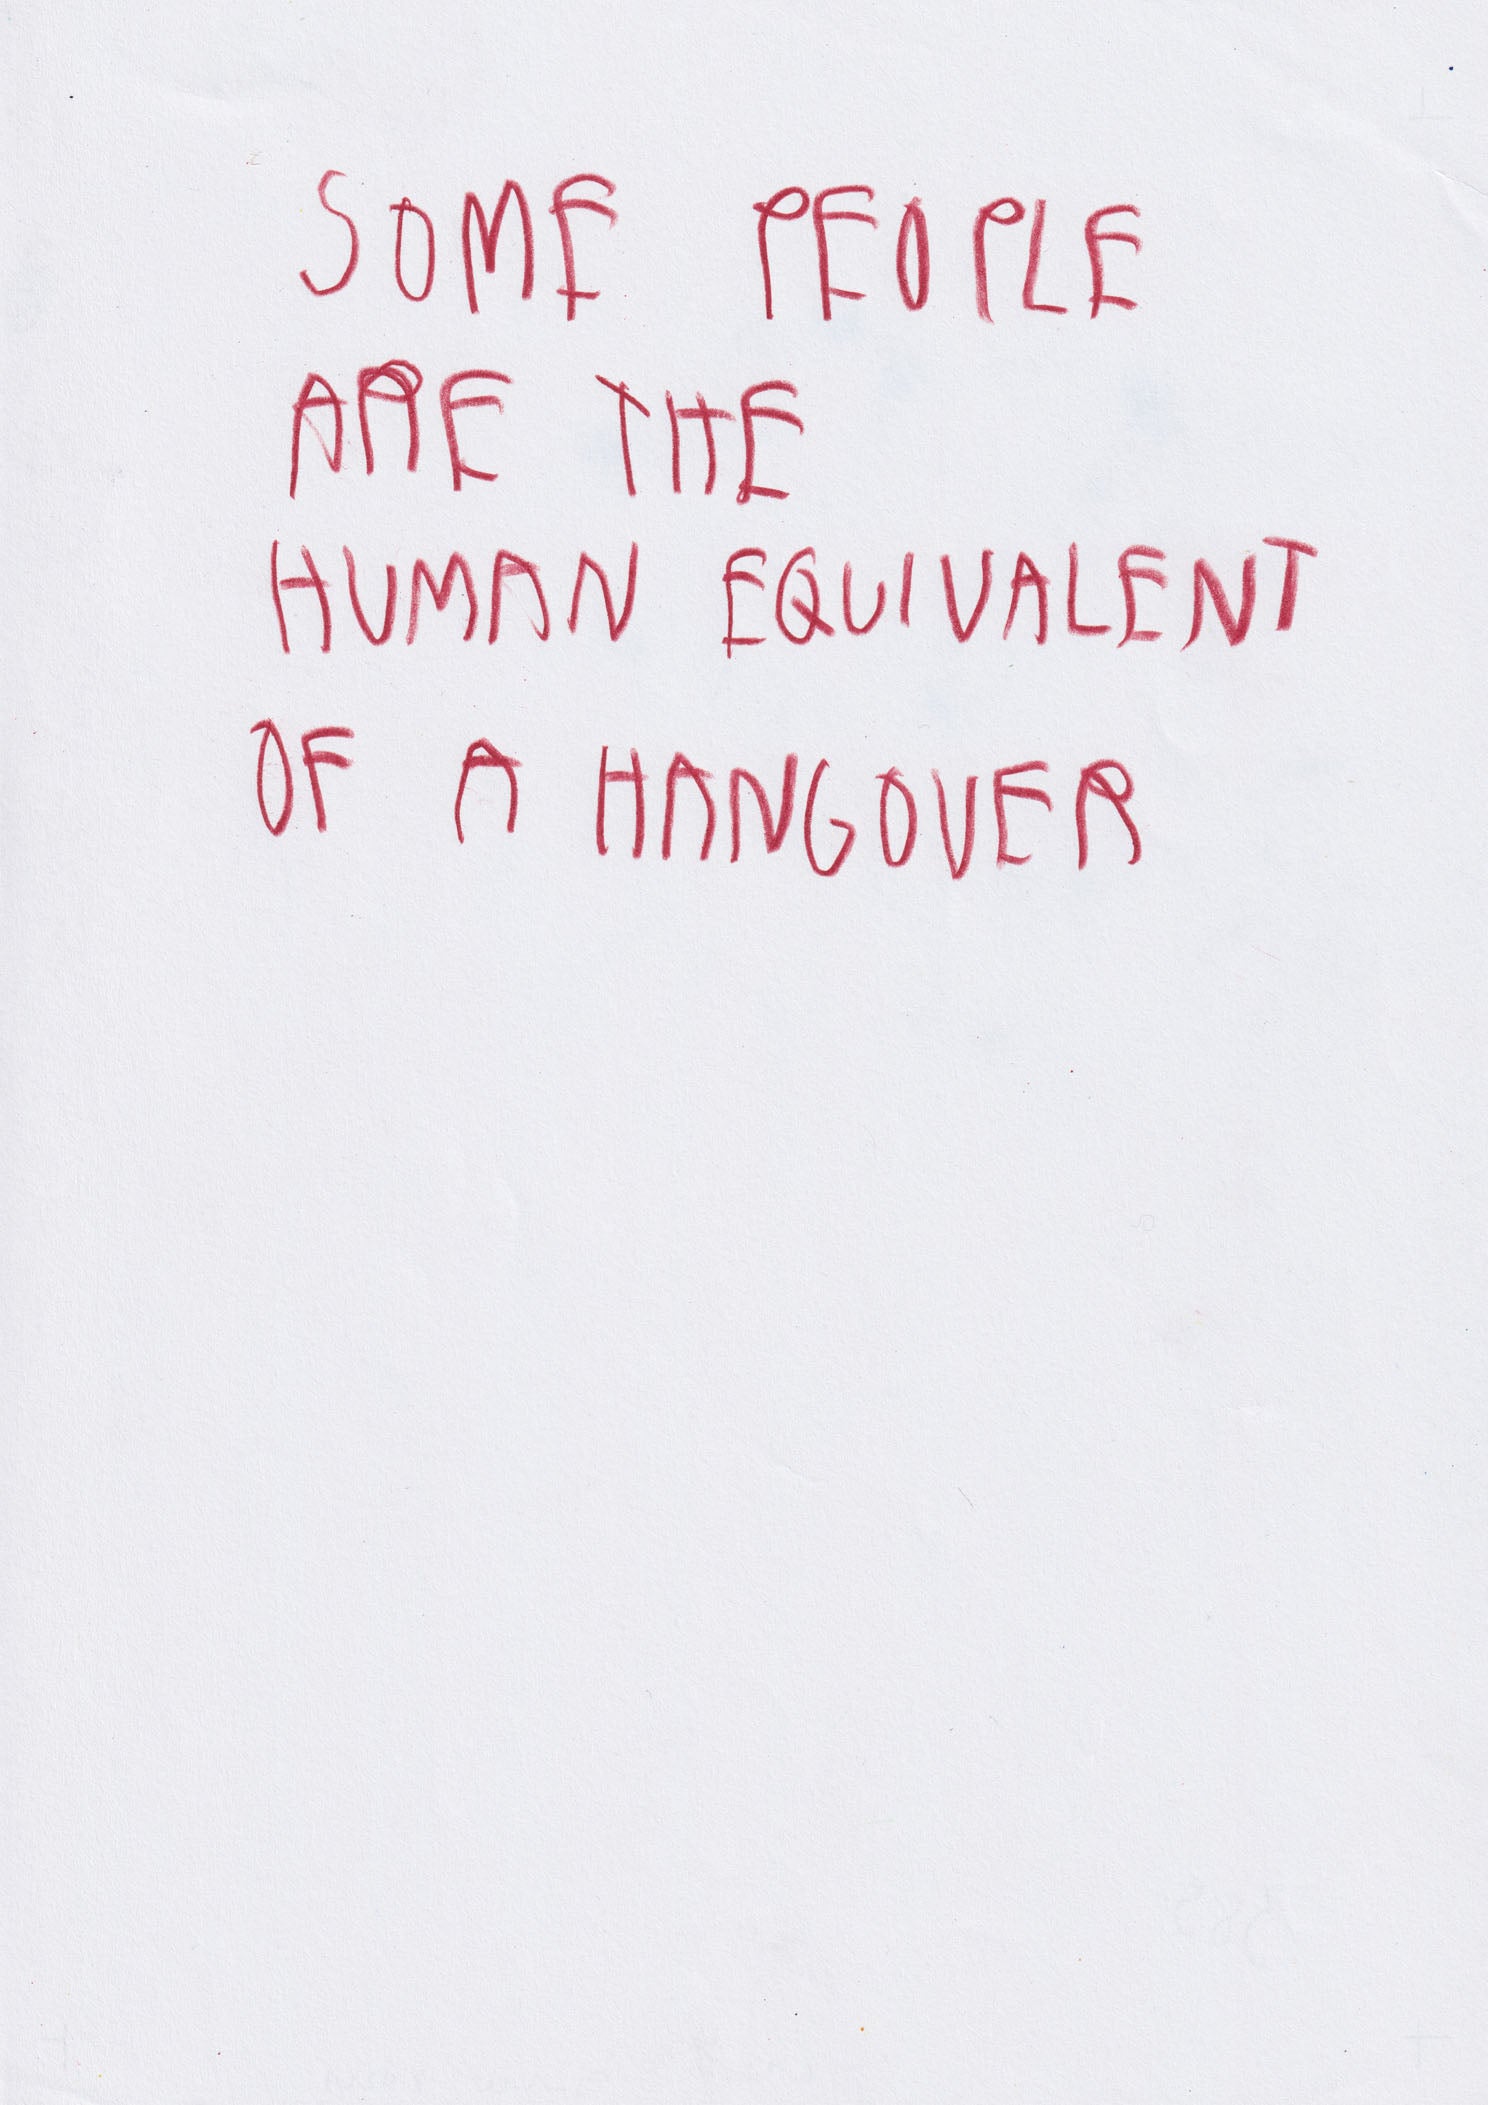 SOME PEOPLE
ARE THE
HUMAN EQUIVALENT
OF A HANGOVER